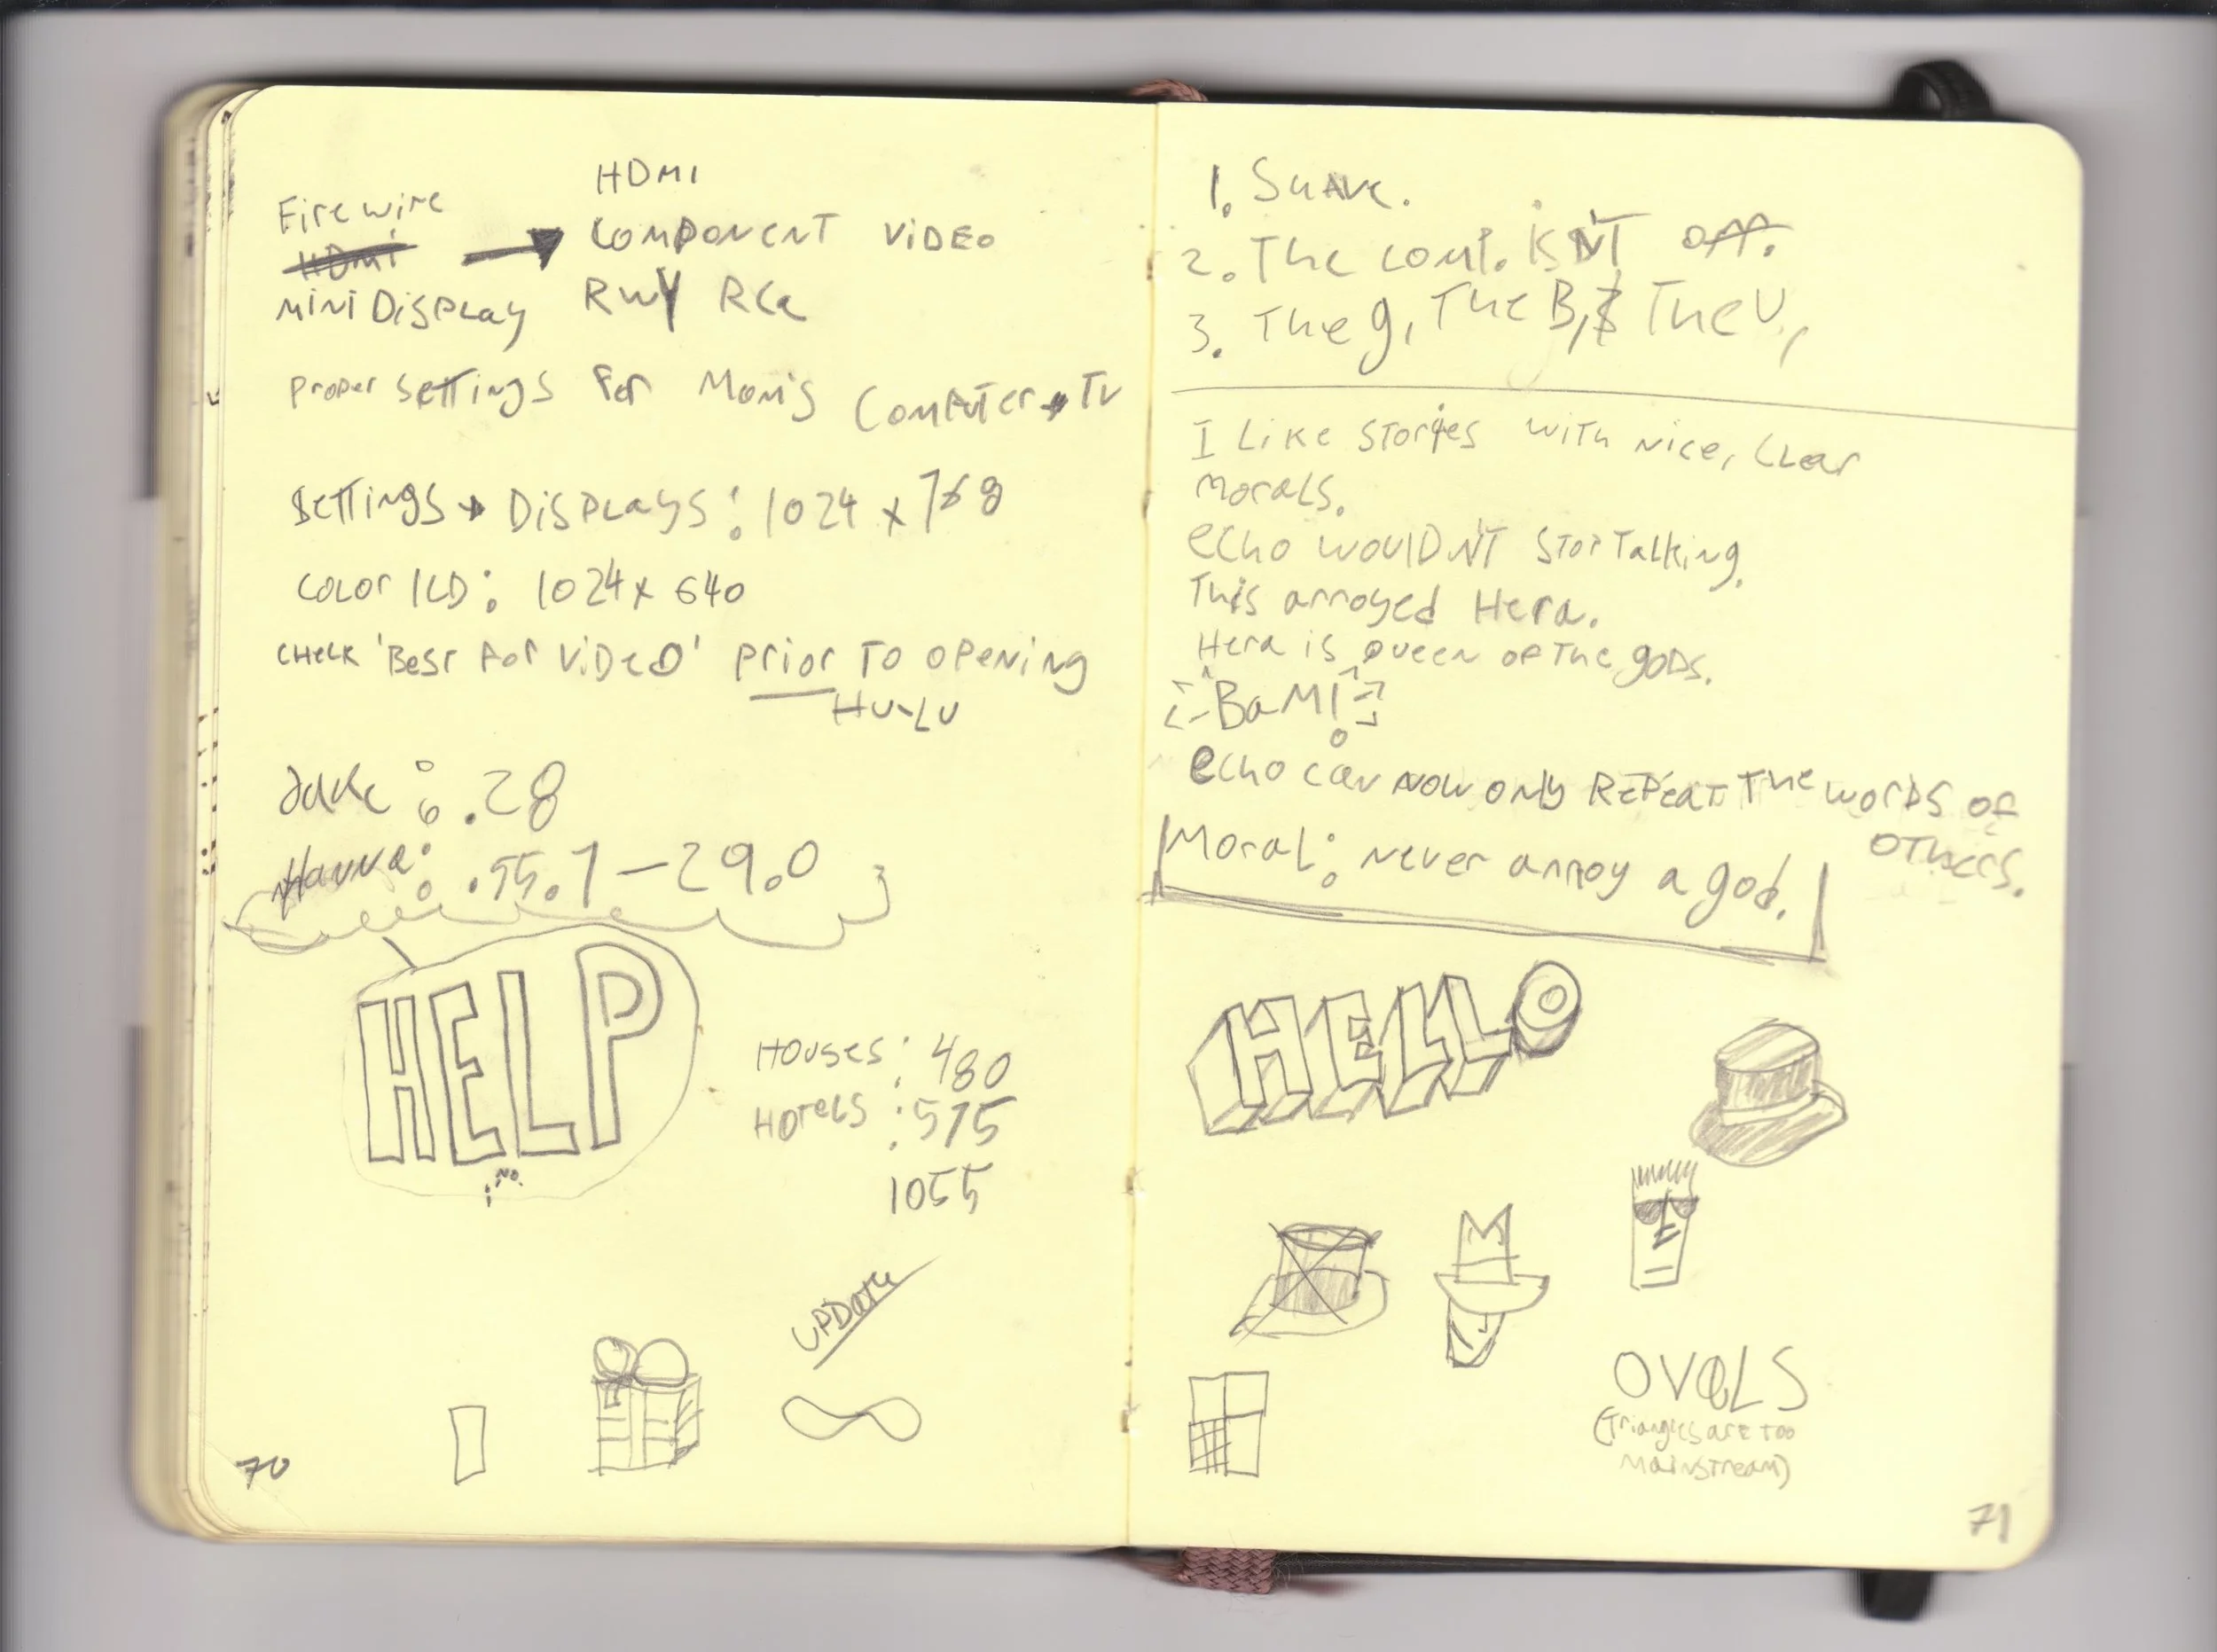 HDMI
Firewire
HDMI
COMPONENT VIDEO
MINI DISPLAY
RWY RCA
Proper settings for Mom's Computer → TV
Settings → Displays: 1024 x 768
Color LCD: 1024 x 640
CHECK 'Best for VIDEO' prior to opening
HU-LU
Jake: .28
Hanna: .55.1 – 29.0
HELP
NO.
Houses: 480
Hotels: 575
1055
UPDATE
70
1. Suave.
2. The comp. ISN'T off.
3. The g, The B, & The U,
I Like stories with nice, clear
morals.
echo wouldn't stop talking.
This annoyed Hera.
Hera is queen of the gods.
BaM!
echo can now only repeat the words of
others.
Moral: never annoy a god.
HELLO
OVALS
(Triangles are too
mainstream)
71